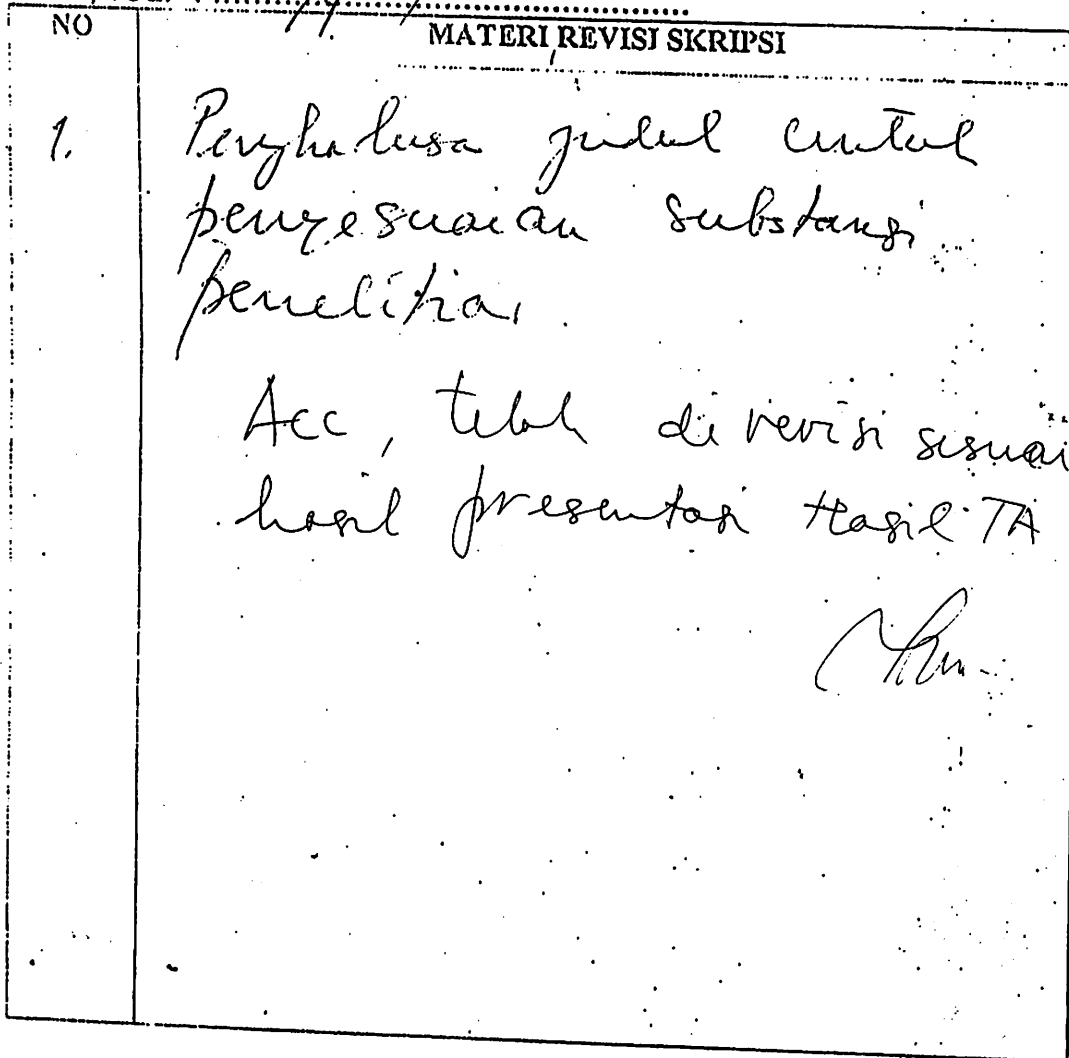 NO
MATERI REVISI SKRIPSI
1. Penghalusa judul untuk
penyesuaian substansi
penelitian
Acc, telah di revisi sesuai
hasil presentasi Hasil TA